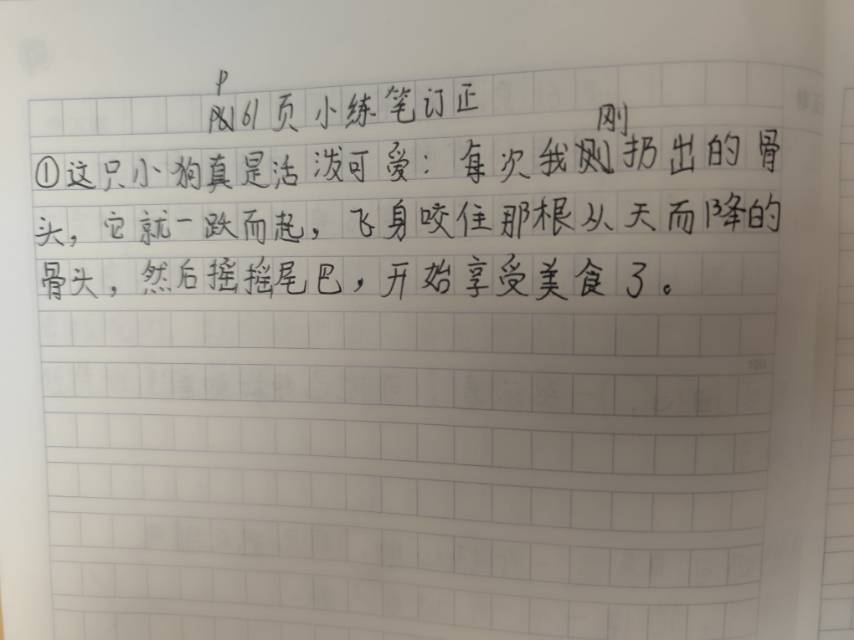 P61页小练笔订正
①这只小狗真是活泼可爱：每次我刚扔出的骨
头，它就一跌而起，飞身咬住那根从天而降的
骨头，然后摇摇尾巴，开始享受美食了。